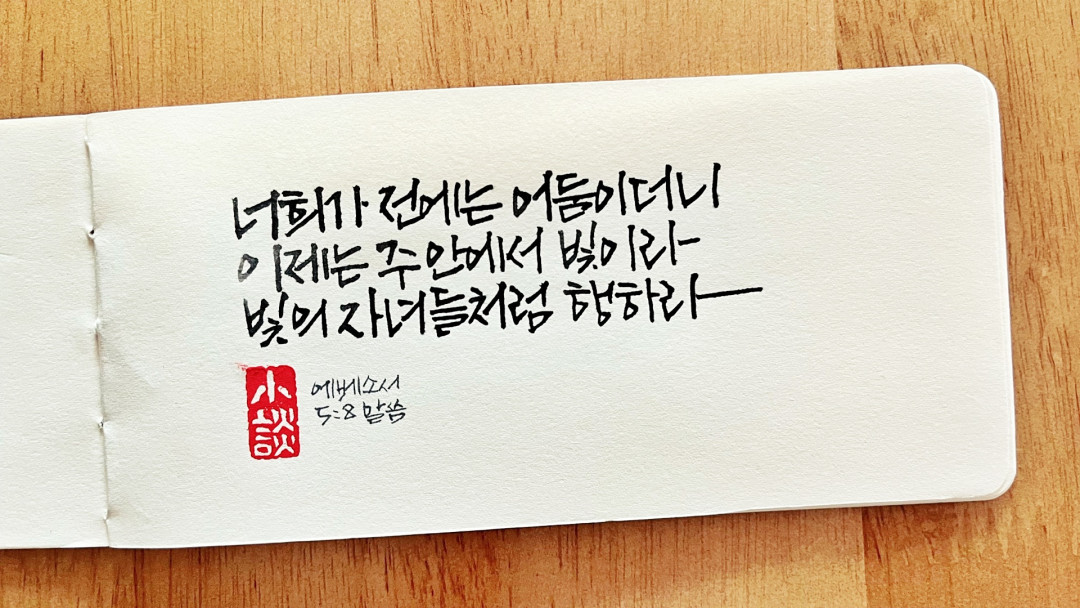 너희가 전에는 어둠이더니
이제는 주 안에서 빛이라
빛의 자녀들처럼 행하라
小談
에베소서
5:8 말씀